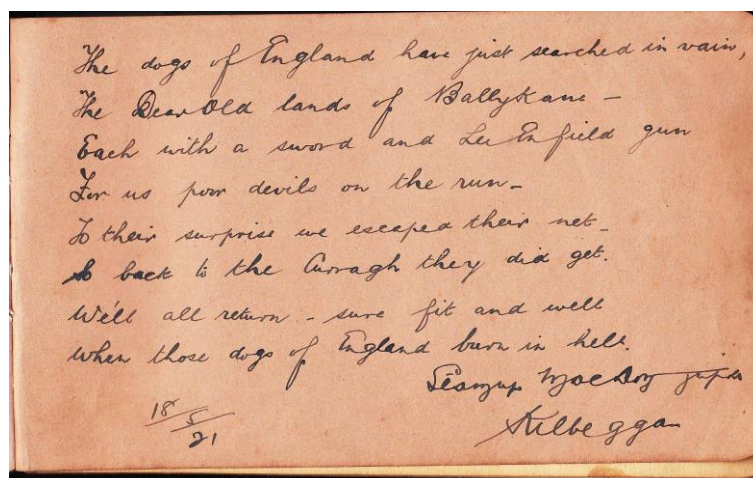 The dogs of England have just searched in vain,
The Dear Old lands of Ballykane –
Each with a sword and Lee Enfield gun
For us poor devils on the run –
To their surprise we escaped their net –
So back to the Curragh they did get.
We'll all return – sure fit and well
When those dogs of England burn in hell.
Kilbeggan
18/5/21